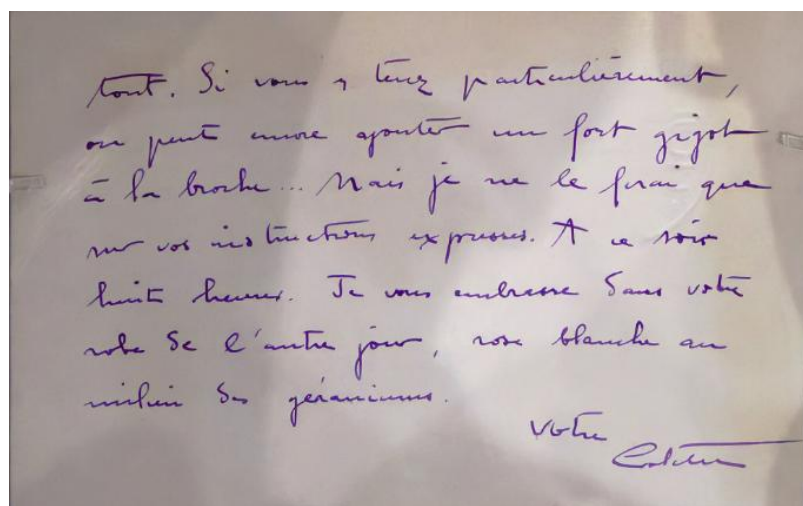 tout. Si vous y tenez particulièrement,
on peut encore ajouter un fort gigot
à la broche... Mais je ne le ferai que
sur vos instructions expresses. A ce soir
huit heures. Je vous embrasse dans votre
robe de l'autre jour, rose blanche au
milieu des géraniums.
Votre
Colette